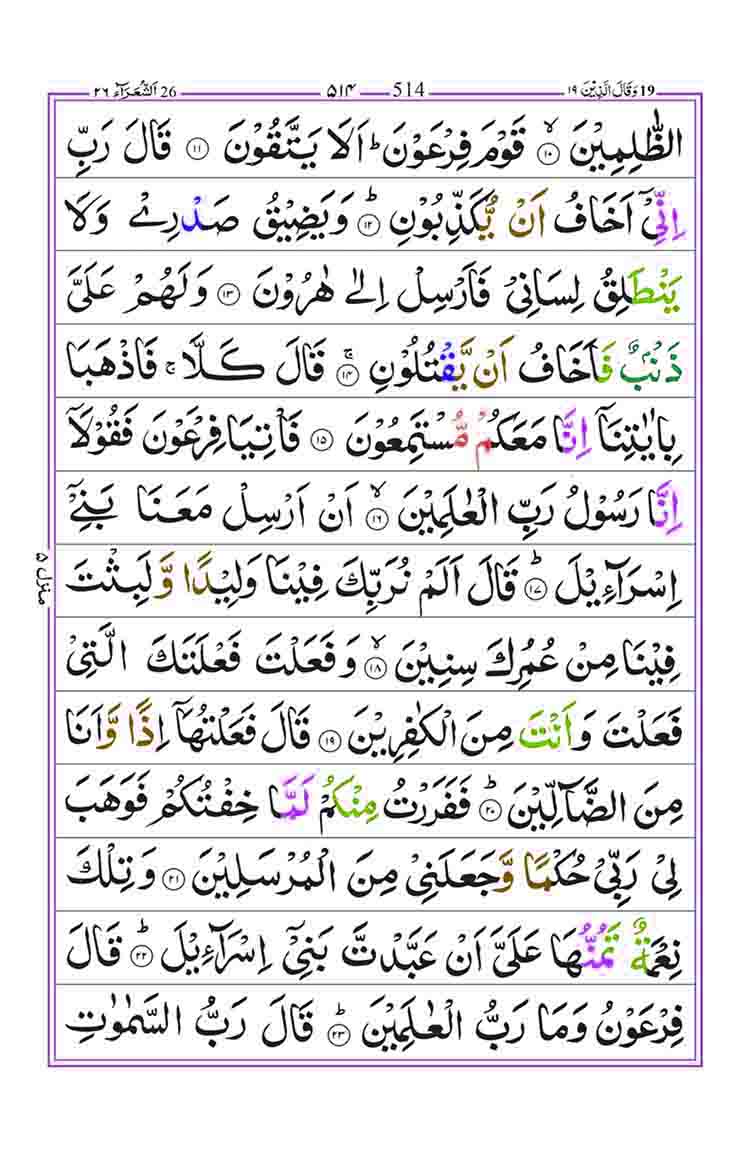 19 وَقَالَ الَّذِيْنَ ١٩ 514 ۵۱۴ 26 اَلشُّعَرَآء ٢٦
الظّٰلِمِيْنَ ۙ‏﴿۱۰﴾ قَوْمَ فِرْعَوْنَ‌ؕ اَلَا يَتَّقُوْنَ ﴿۱۱﴾ قَالَ رَبِّ
اِنِّىْۤ اَخَافُ اَنْ يُّكَذِّبُوْنِؕ ﴿۱۲﴾ وَيَضِيْقُ صَدْرِىْ وَلَا
يَنْطَلِقُ لِسَانِىْ فَاَرْسِلْ اِلٰى هٰرُوْنَ ﴿۱۳﴾ وَلَهُمْ عَلَىَّ
ذَنْۢبٌ فَاَخَافُ اَنْ يَّقْتُلُوْنِ‌ۚ ﴿۱۴﴾ قَالَ كَلَّا‌ ۚ فَاذْهَبَا
بِاٰيٰتِنَآ اِنَّا مَعَكُمْ مُّسْتَمِعُوْنَ ﴿۱۵﴾ فَاْتِيَا فِرْعَوْنَ فَقُوْلَاۤ
اِنَّا رَسُوْلُ رَبِّ الْعٰلَمِيْنَۙ ﴿۱۶﴾ اَنْ اَرْسِلْ مَعَنَا بَنِىْۤ
اِسْرَآءِيْلَؕ ﴿۱۷﴾ قَالَ اَلَمْ نُرَبِّكَ فِيْنَا وَلِيْدًا وَّلَبِثْتَ
فِيْنَا مِنْ عُمُرِكَ سِنِيْنَۙ ﴿۱۸﴾ وَفَعَلْتَ فَعْلَتَكَ الَّتِىْ
فَعَلْتَ وَاَنْتَ مِنَ الْكٰفِرِيْنَ ﴿۱۹﴾ قَالَ فَعَلْتُهَاۤ اِذًا وَّاَنَا
مِنَ الضَّآلِّيْنَؕ ﴿۲۰﴾ فَفَرَرْتُ مِنْكُمْ لَمَّا خِفْتُكُمْ فَوَهَبَ
لِىْ رَبِّىْ حُكْمًا وَّجَعَلَنِىْ مِنَ الْمُرْسَلِيْنَ ﴿۲۱﴾ وَتِلْكَ
نِعْمَةٌ تَمُنُّهَا عَلَىَّ اَنْ عَبَّدْتَّ بَنِىْۤ اِسْرَآءِيْلَؕ ﴿۲۲﴾ قَالَ
فِرْعَوْنُ وَمَا رَبُّ الْعٰلَمِيْنَؕ ﴿۲۳﴾ قَالَ رَبُّ السَّمٰوٰتِ
منزل ۵